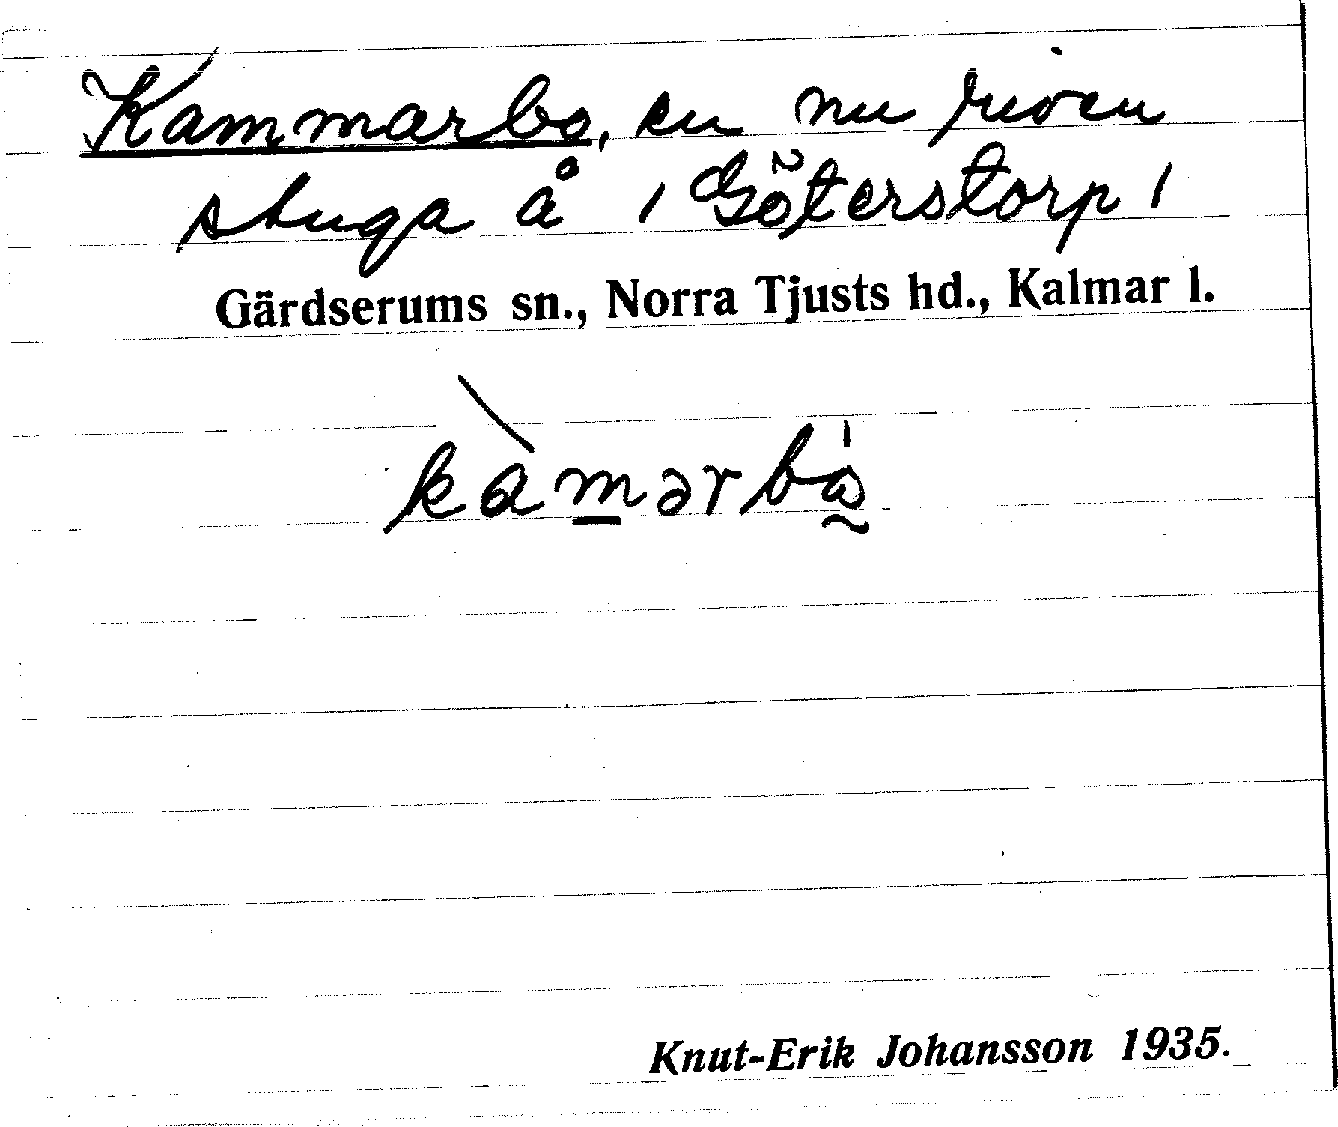 Kammarbo, en nu riven
stuga å / Göterstorp /
Gärdserums sn., Norra Tjusts hd., Kalmar l.
kàmərbò̰
Knut-Erik Johansson 1935.